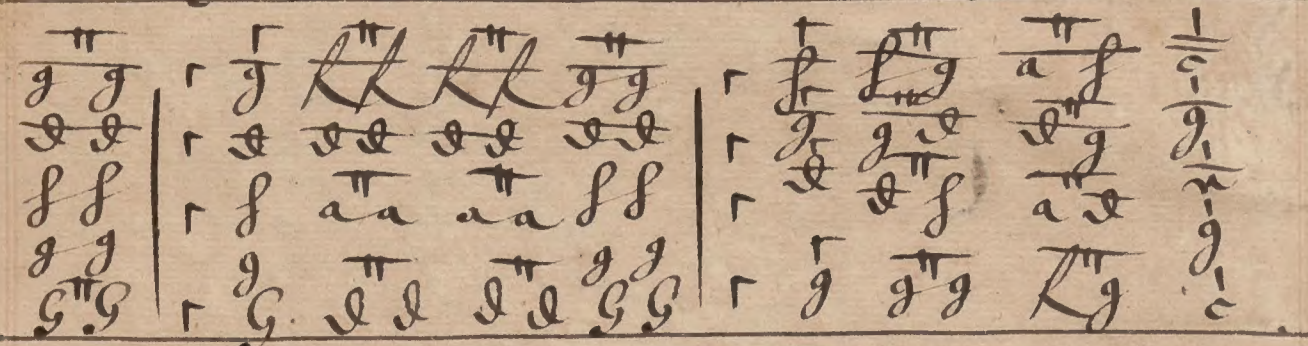 g g | g h h h h g g | f f g a f c
d d | d d d d d d d | g g d d g g
f f | f a a a a f f | d d f a d e
g g | g g g | g
G G | G d d d d G G | g g g h g c